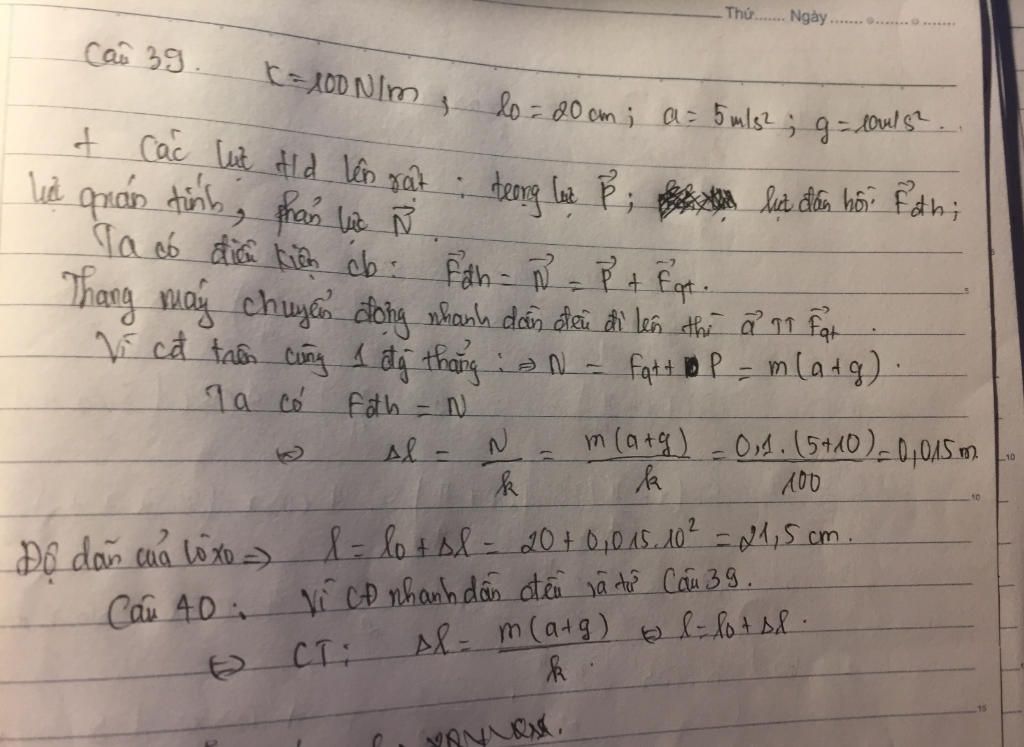 Thứ....... Ngày.......................
Câu 39. K=100N/m ; l0 = 20cm ; a = 5m/s² ; g = 10m/s².
+ Các lực t/d lên vật : trọng lực P⃗ ; lực đàn hồi F⃗đh ;
lực quán tính, phản lực N⃗.
Ta có điều kiện cb : F⃗đh = N⃗ = P⃗ + F⃗qt.
Thang máy chuyển động nhanh dần đều đi lên thì a⃗ ↑↑ F⃗qt.
Vì cđ trên cùng 1 đg thẳng : ⇒ N = Fqt + P = m(a+g).
Ta có Fđh = N
⇔ Δl = N/k = m(a+g)/k = 0,1.(5+10)/100 = 0,015m
Độ dãn của lò xo ⇒ l = l0 + Δl = 20 + 0,015.10² = 21,5 cm.
Câu 40 : Vì CĐ nhanh dần đều và từ Câu 39.
⇔ CT : Δl = m(a+g)/k ⇔ l = l0 + Δl.